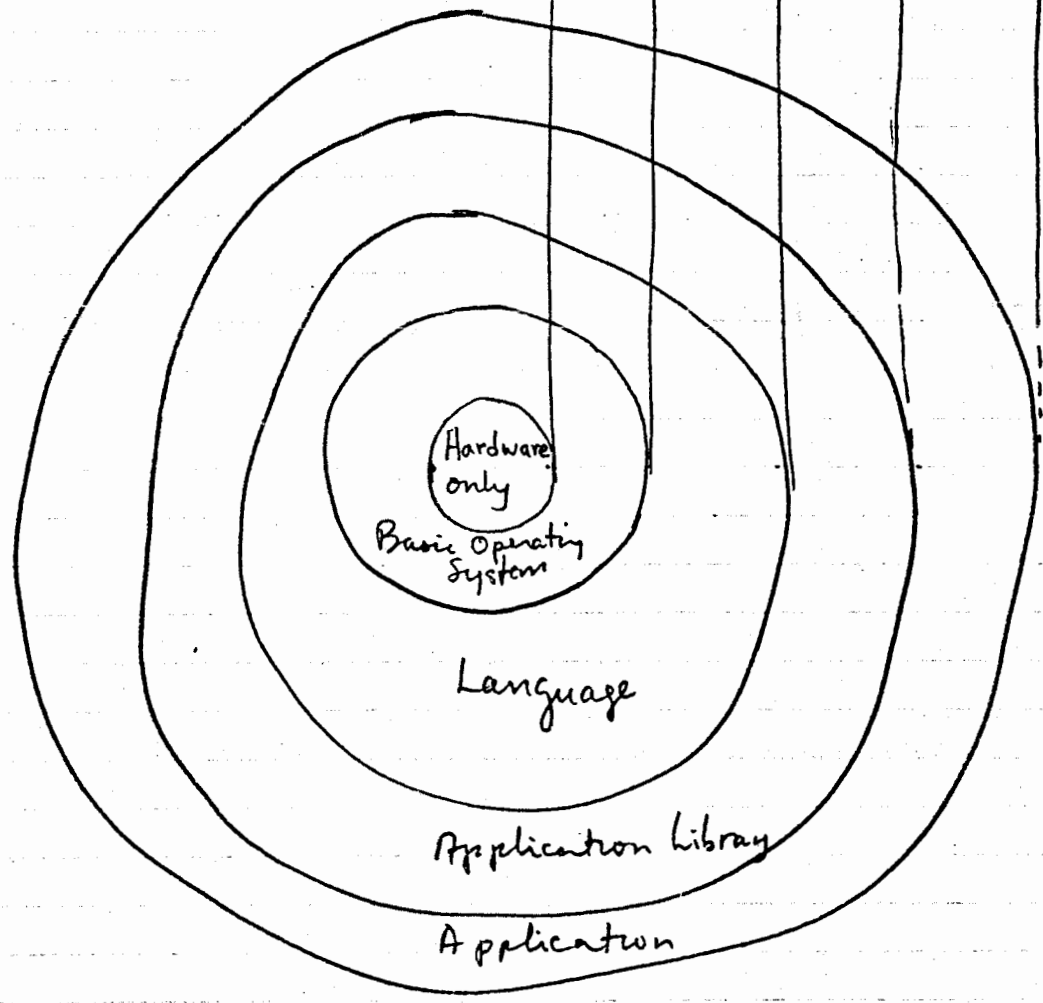 Hardware
only
Basic Operating
System
Language
Application Library
Application